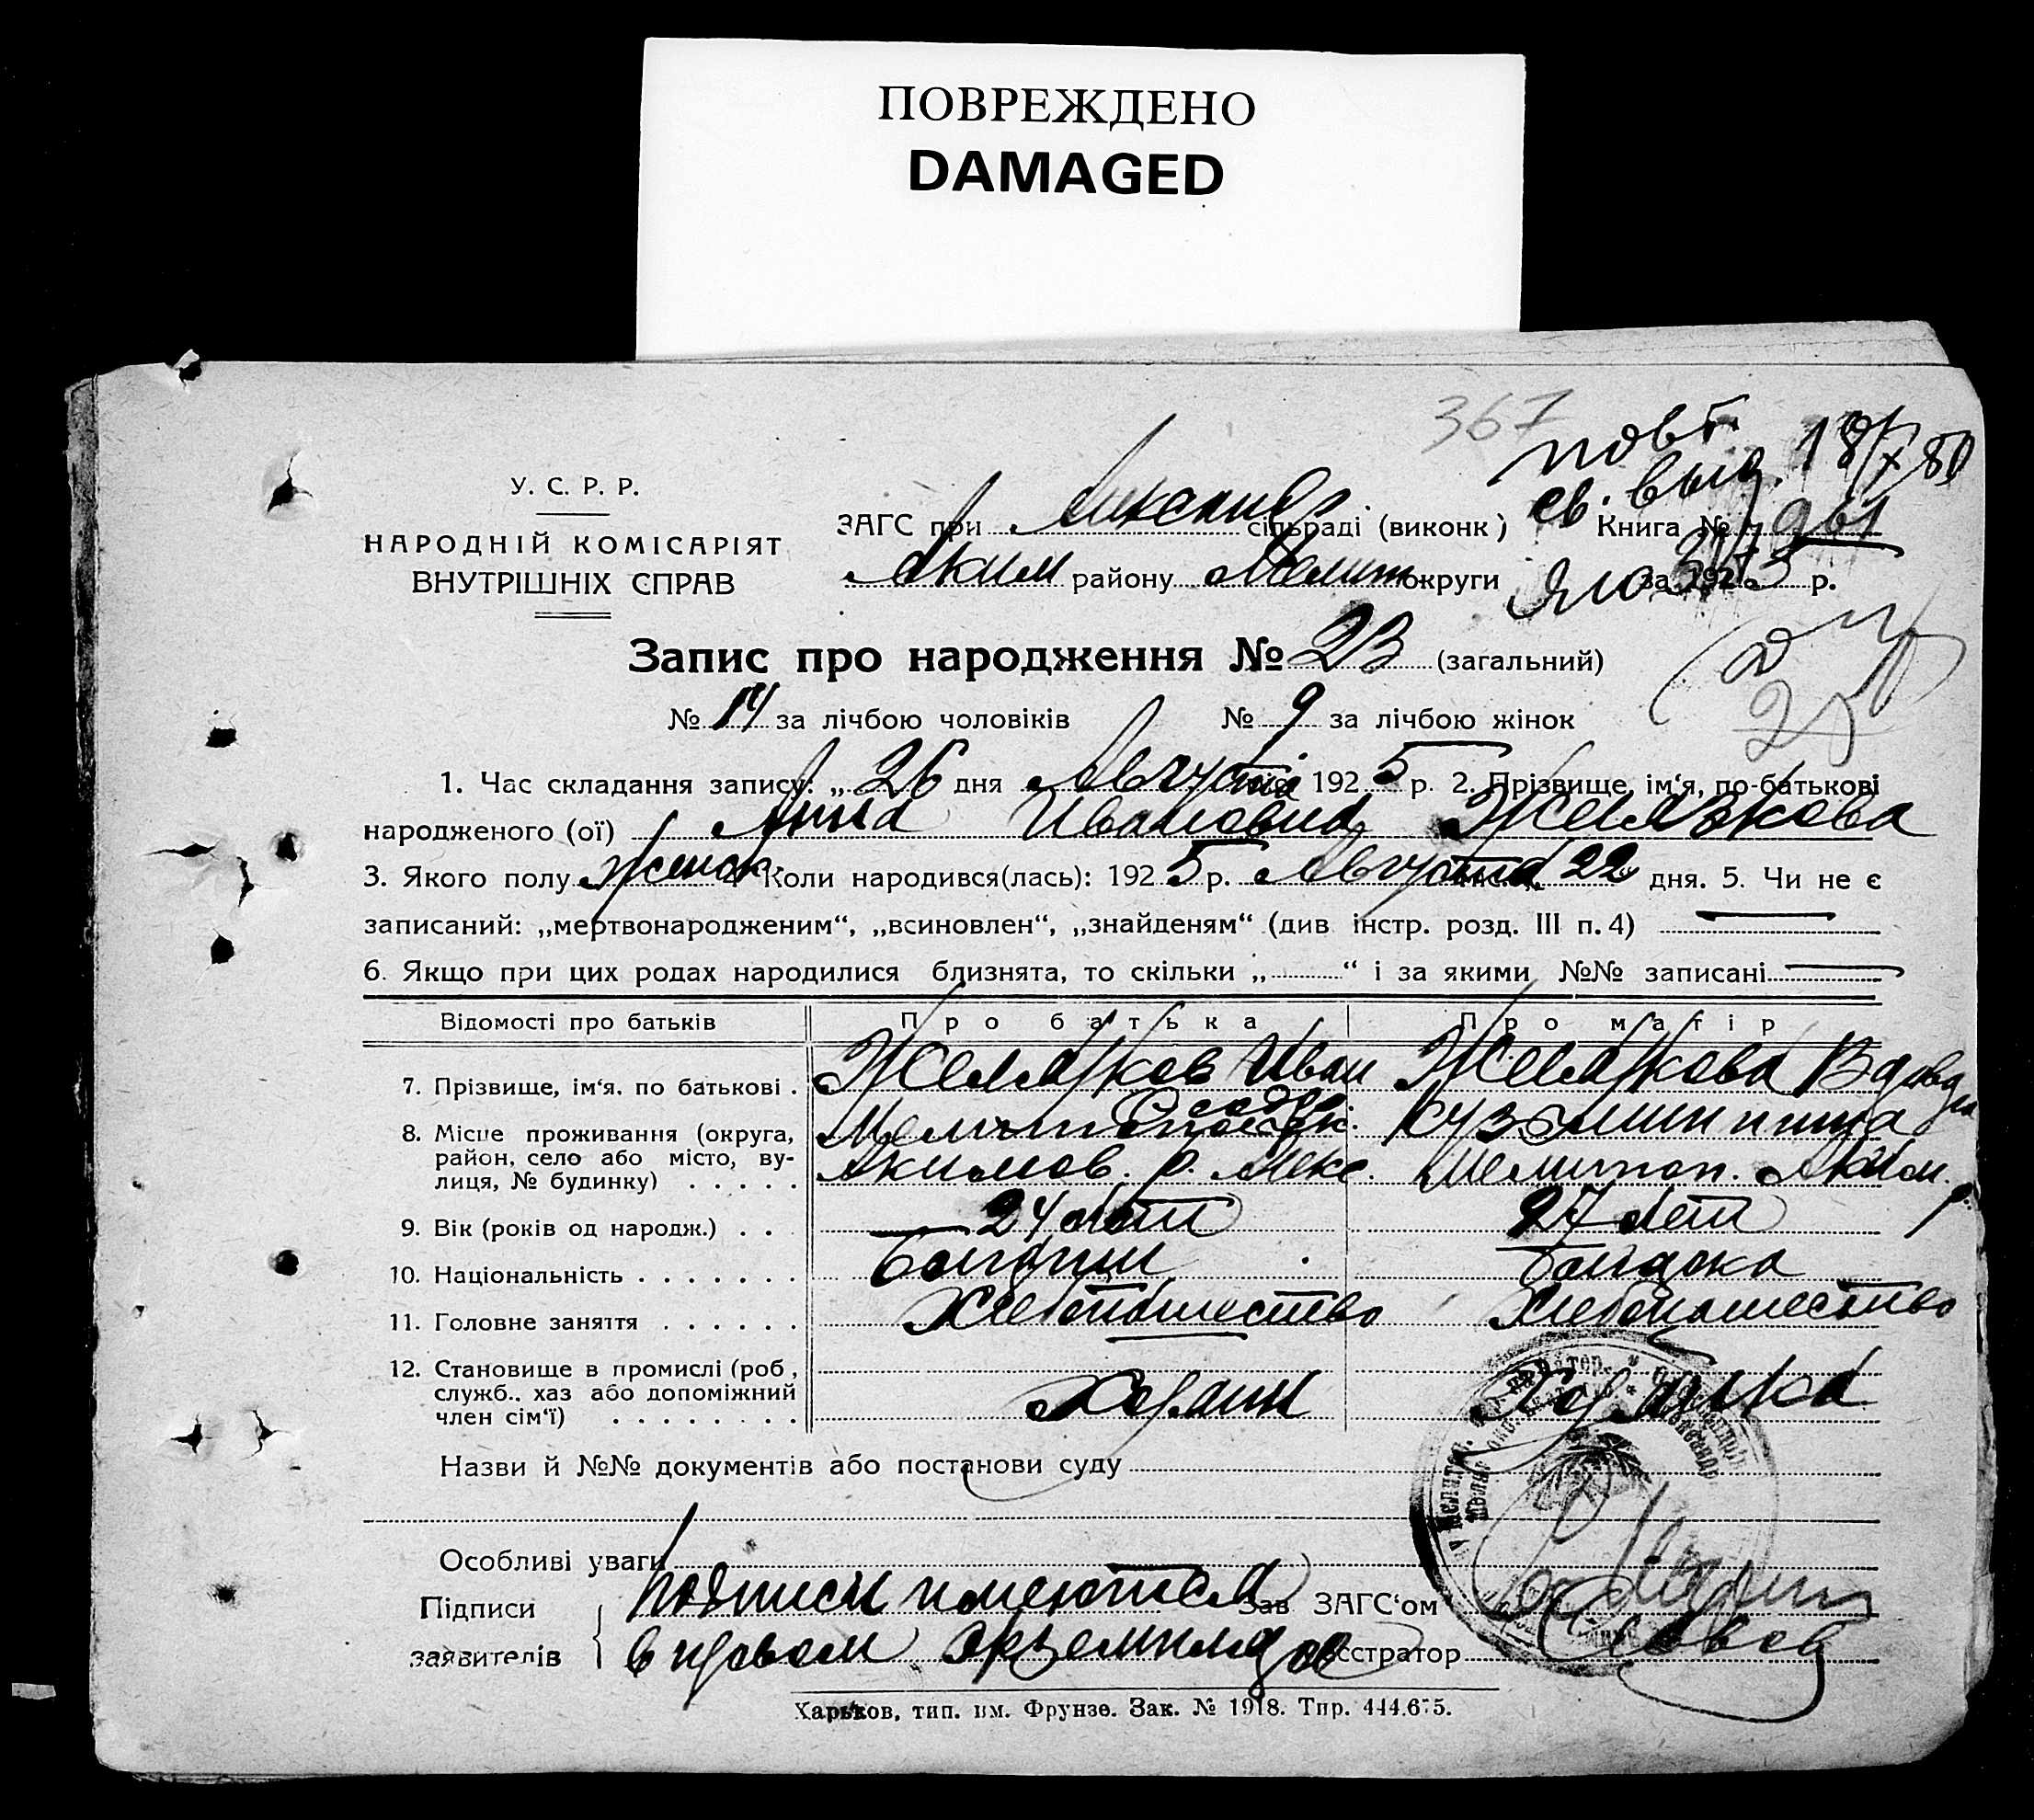 ПОВРЕЖДЕНО
DAMAGED
367
повт.
св. выд. 18/X 80
У. С. Р. Р.
НАРОДНІЙ КОМІСАРІЯТ
ВНУТРІШНІХ СПРАВ
ЗАГС при Александр. сільраді (виконк) Книга №
Аким району Мелит округи за 192 5 р.
Запис про народження № 23 (загальний)
№ 14 за лічбою чоловіків № 9 за лічбою жінок
1. Час складання запису: „ 26 дня Августа 192 5 р. 2. Прізвище, ім'я, по-батькові
народженого (ої) Анна Ивановна Желязкова
3. Якого полу женск. 4. Коли народився(лась): 192 5 р. Августа 22 дня. 5. Чи не є
записаний: „мертвонародженим“, „всиновлен“, „знайденям“ (див інстр. розд. III п. 4)
6. Якщо при цих родах народилися близнята, то скільки „ “ і за якими №№ записані
Відомості про батьків Про батька Про матір
7. Прізвище, ім'я, по батькові . Желязков Иван Желязкова
8. Місце проживання (округа, район, село або місто, вулиця, № будинку) . . . . . Акимов. р. Алекс. Мелитоп. Аким. р.
9. Вік (років од народж.) . . 24 лет 27 лет
10. Національність . . . . . . . Болгарин Болгарка
11. Головне заняття . . . . . . Хлебопашество Хлебопашество
12. Становище в промислі (роб, служб., хаз або допоміжний член сім'ї) . . . . . . . . Хозяин Хозяйка
Назви й №№ документів або постанови суду
Особливі уваги
Підписи заявителів
подписи имеются
в правом экземпляре
Зав ЗАГС'ом
Харьков, тип. им. Фрунзе. Зак. № 1918. Тир. 444.675.